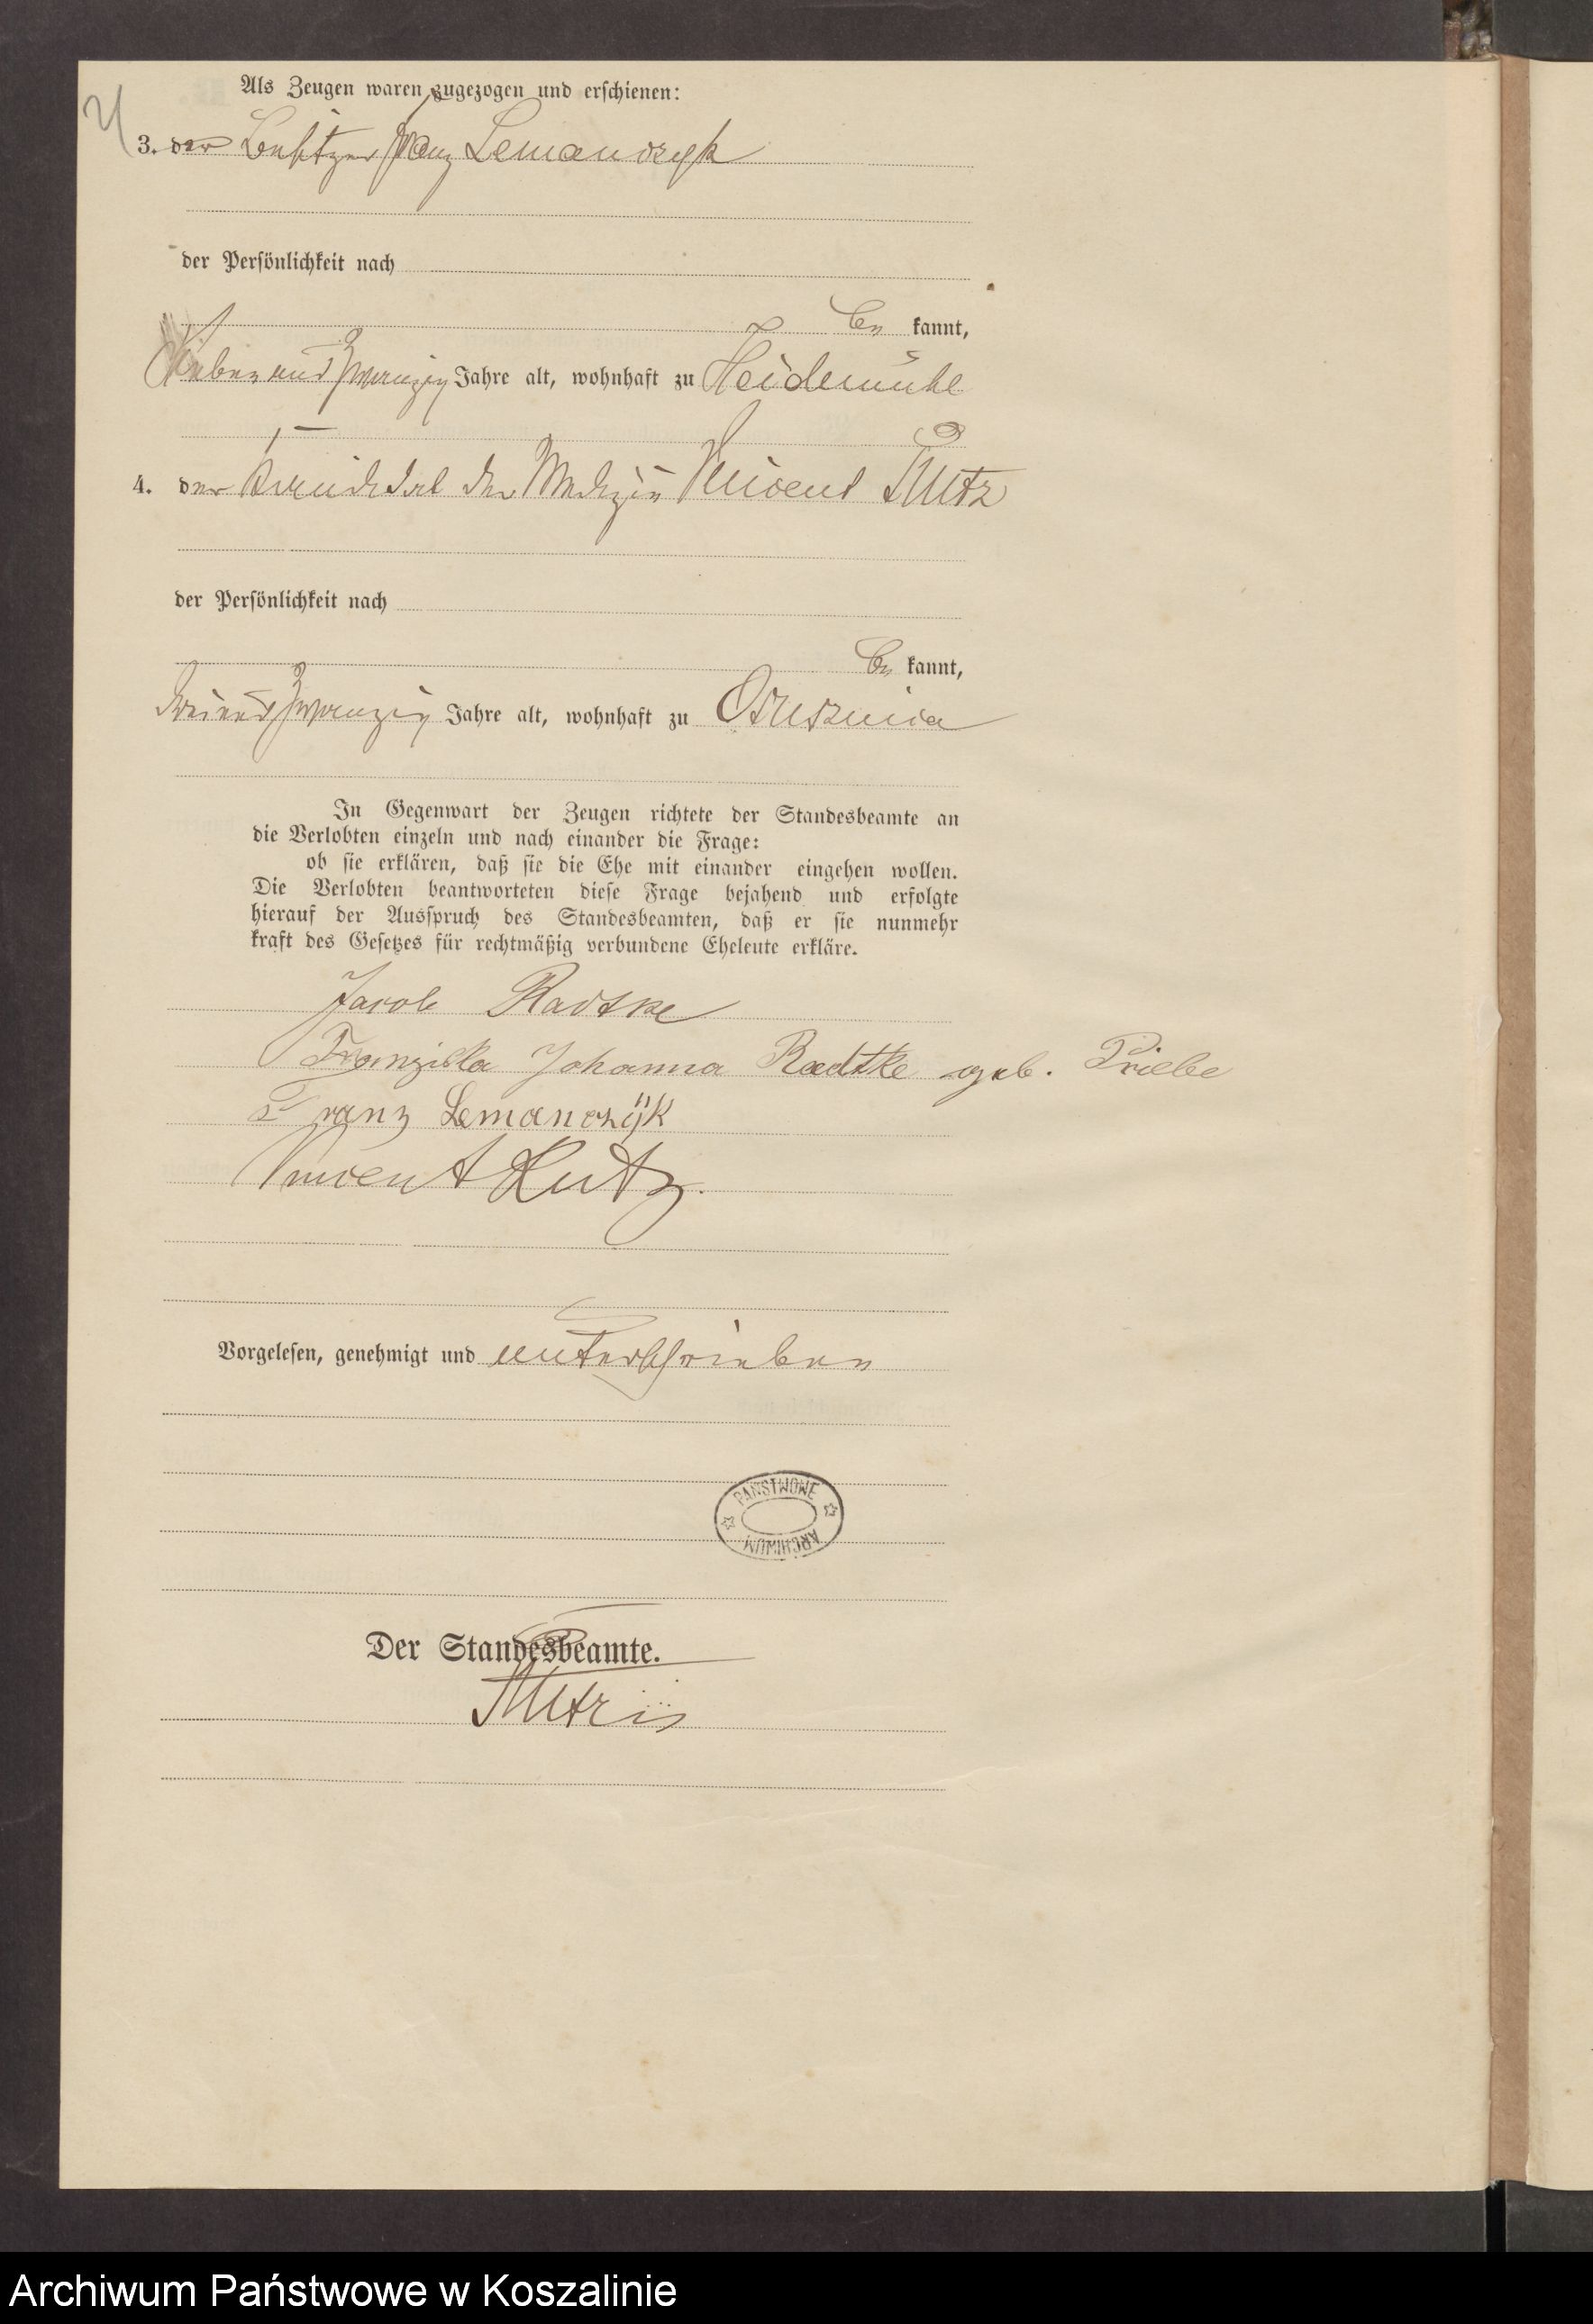 Als Zeugen waren zugezogen und erschienen:
3. der Besitzer Franz Lemanczyk
der Persönlichkeit nach
be kannt,
sieben und zwanzig Jahre alt, wohnhaft zu Heidemühl
4. der der Medizin Vincent
der Persönlichkeit nach
be kannt,
zwanzig Jahre alt, wohnhaft zu
In Gegenwart der Zeugen richtete der Standesbeamte an
die Verlobten einzeln und nach einander die Frage:
ob sie erklären, daß sie die Ehe mit einander eingehen wollen.
Die Verlobten beantworteten diese Frage bejahend und erfolgte
hierauf der Ausspruch des Standesbeamten, daß er sie nunmehr
kraft des Gesetzes für rechtmäßig verbundene Eheleute erkläre.
Jacob Radtke
Franziska Johanna Radtke geb. Priebe
Franz Lemanczÿk
Vincent
Vorgelesen, genehmigt und unterschrieben
PAŃSTWOWE
ARCHIWUM
Der Standesbeamte.
Archiwum Państwowe w Koszalinie